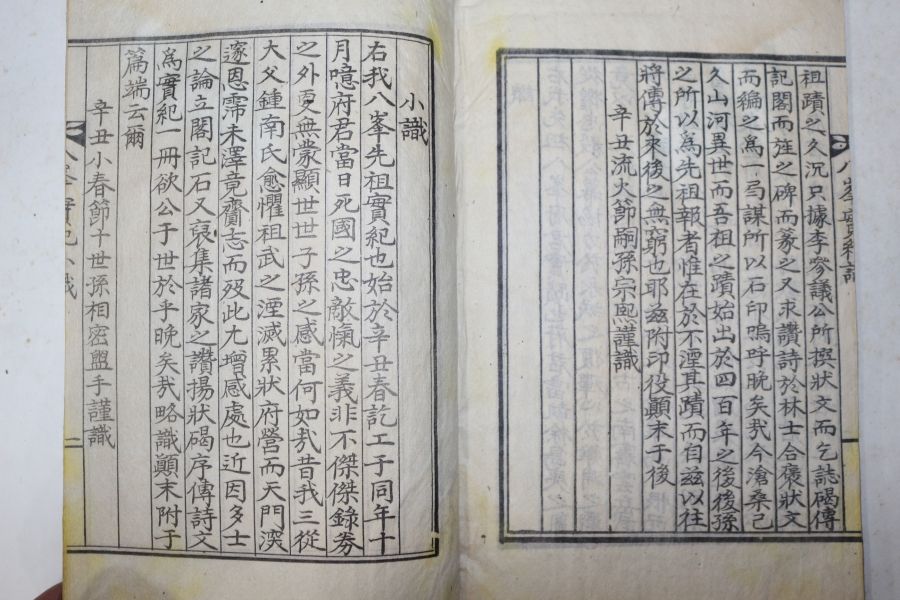 祖蹟之久沉只據李參議公所撰狀文而乞誌碣傳
記閣而旌之碑而篆之又求讚詩於林士合褒狀文
而編之爲一弓謀所以石印嗚呼晚矣我今滄桑已
久山河異世而吾祖之蹟始出於四百年之後後孫
之所以爲先祖報者惟在於不湮其蹟而自玆以往
將傳於來後之無窮也耶玆附印役顚末于後
辛丑流火節嗣孫宗熙謹識
八峯實紀識
小識
右我八峯先祖實紀也始於辛丑春訖工于同年十
月噫府君當日死國之忠敵愾之義非不傑傑錄券
之外更無蒙顯世世子孫之感當何如哉昔我三從
大父鍾南氏愈懼祖武之湮滅累狀府營而天門深
邃恩霈未澤竟齎志而歿此尤增感處也近因多士
之論立閣記石又裒集諸家之讚揚狀碣序傳詩文
爲實紀一冊欲公于世於乎晚矣哉略識顚末附于
篇端云爾
辛丑小春節十世孫相密盥手謹識
八峯實紀小識
二